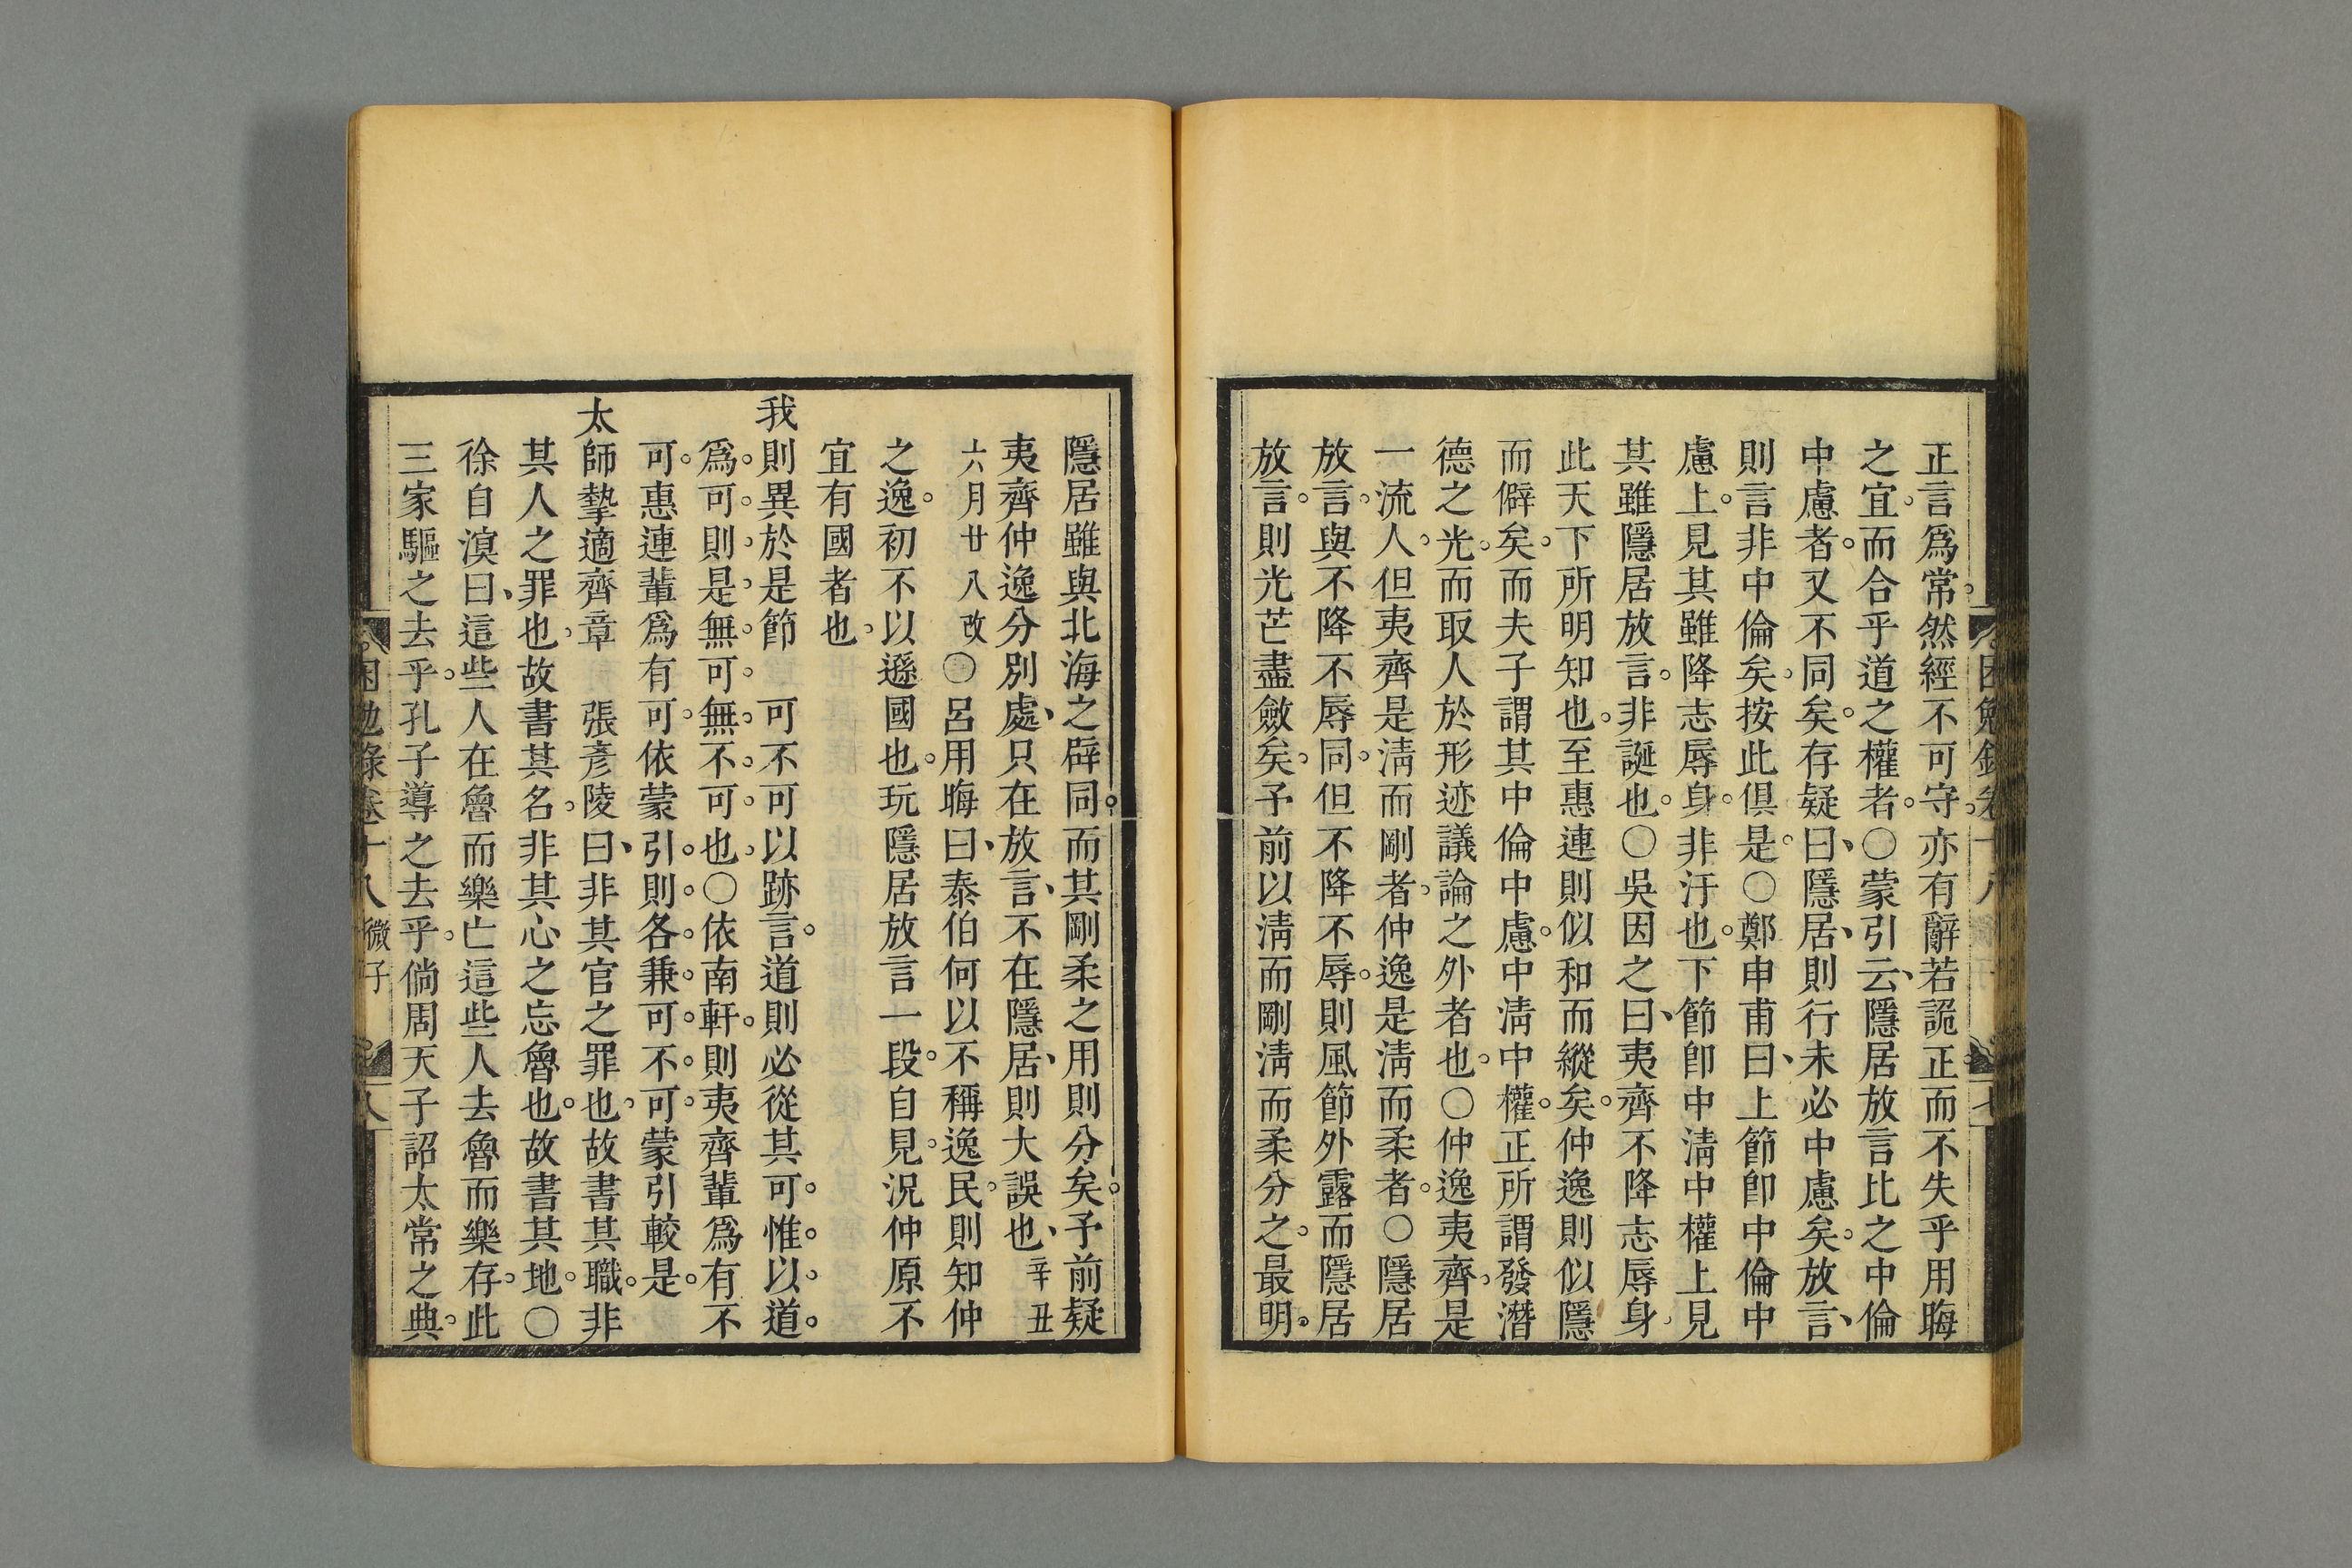 正言爲常。然經不可守。亦有辭若詭正而不失乎用晦
之宜。而合乎道之權者。〇蒙引云、隱居放言比之中倫
中慮者。又不同矣。存疑曰、隱居、則行未必中慮矣。放言、
則言非中倫矣。按此俱是。〇鄭申甫曰、上節卽中倫中
慮上。見其雖降志辱身。非汙也。下節卽中淸中權上見
其雖隱居放言。非誕也。〇吳因之曰、夷齊不降志辱身。
此天下所明知也。至惠連則似和而縱矣。仲逸則似隱
而僻矣。而夫子謂其中倫中慮。中淸中權。正所謂發潛
德之光。而取人於形迹議論之外者也。〇仲逸夷齊。是
一流人。但夷齊是淸而剛者。仲逸是淸而柔者。〇隱居
放言。與不降不辱同。但不降不辱。則風節外露而隱居
放言。則光芒盡斂矣。予前以淸而剛淸而柔分之。最明。
隱居雖與北海之辟同。而其剛柔之用則分矣。予前疑
夷齊仲逸分別處、只在放言、不在隱居、則大誤也、辛丑
六月廿八改〇呂用晦曰、泰伯何以不稱逸民。則知仲
之逸。初不以遜國也。玩隱居放言一段。自見。況仲原不
宜有國者也。
我則異於是節　可不可以跡言。道則必從其可。惟。以。道。
爲。可。則。是。無。可。無。不。可。也。〇依南軒。則夷齊輩爲有不
可。惠連輩爲有可。依蒙引。則。各。兼。可。不。可。蒙引較是。
太師摯適齊章　張彥陵曰、非其官之罪也。故書其職。非
其人之罪也。故書其名。非其心之忘魯也。故書其地。〇
徐自溟曰、這些人在魯而樂亡這些人去魯而樂存。此
三家驅之去乎。孔子導之去乎。倘周天子詔太常之典。
困勉錄卷十八 微子 八